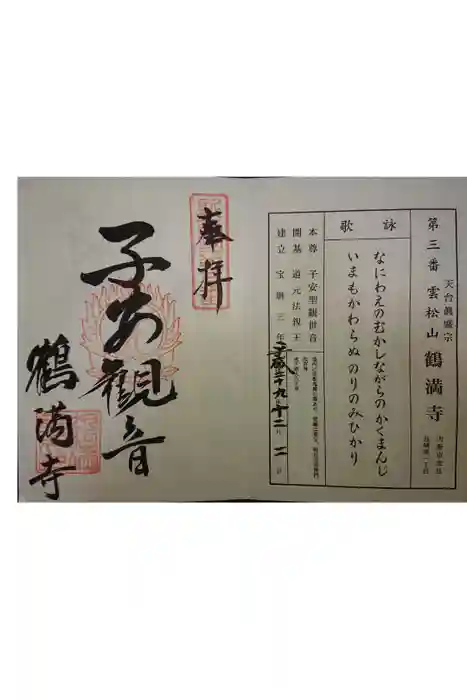 天台眞盛宗
第三番 雲松山 鶴満寺
詠歌
なにわえのむかしながらのかくまんじ
いまもかわらぬのりのみひかり
本尊 子安聖観世音
開基 道元法親王
建立 宝暦三年
平成二十九年十二月二日
奉拝
子安観音
鶴満寺